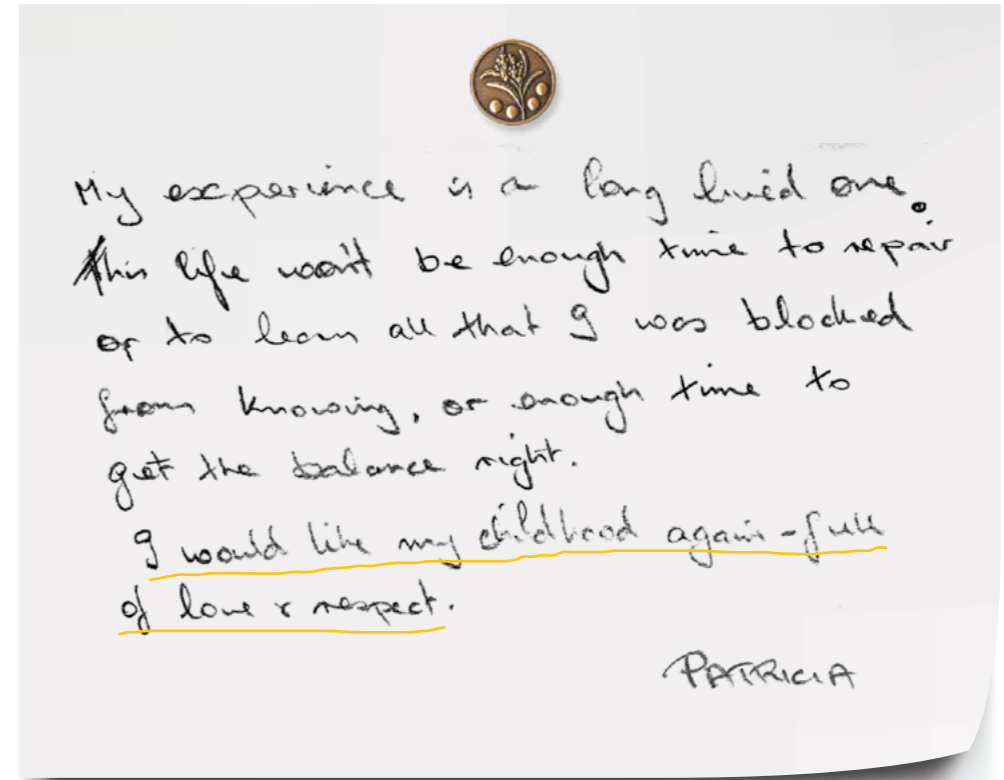 My experience is a long lived one.
This life won't be enough time to repair
or to learn all that I was blocked
from knowing, or enough time to
get the balance right.
I would like my childhood again - full
of love & respect.
PATRICIA